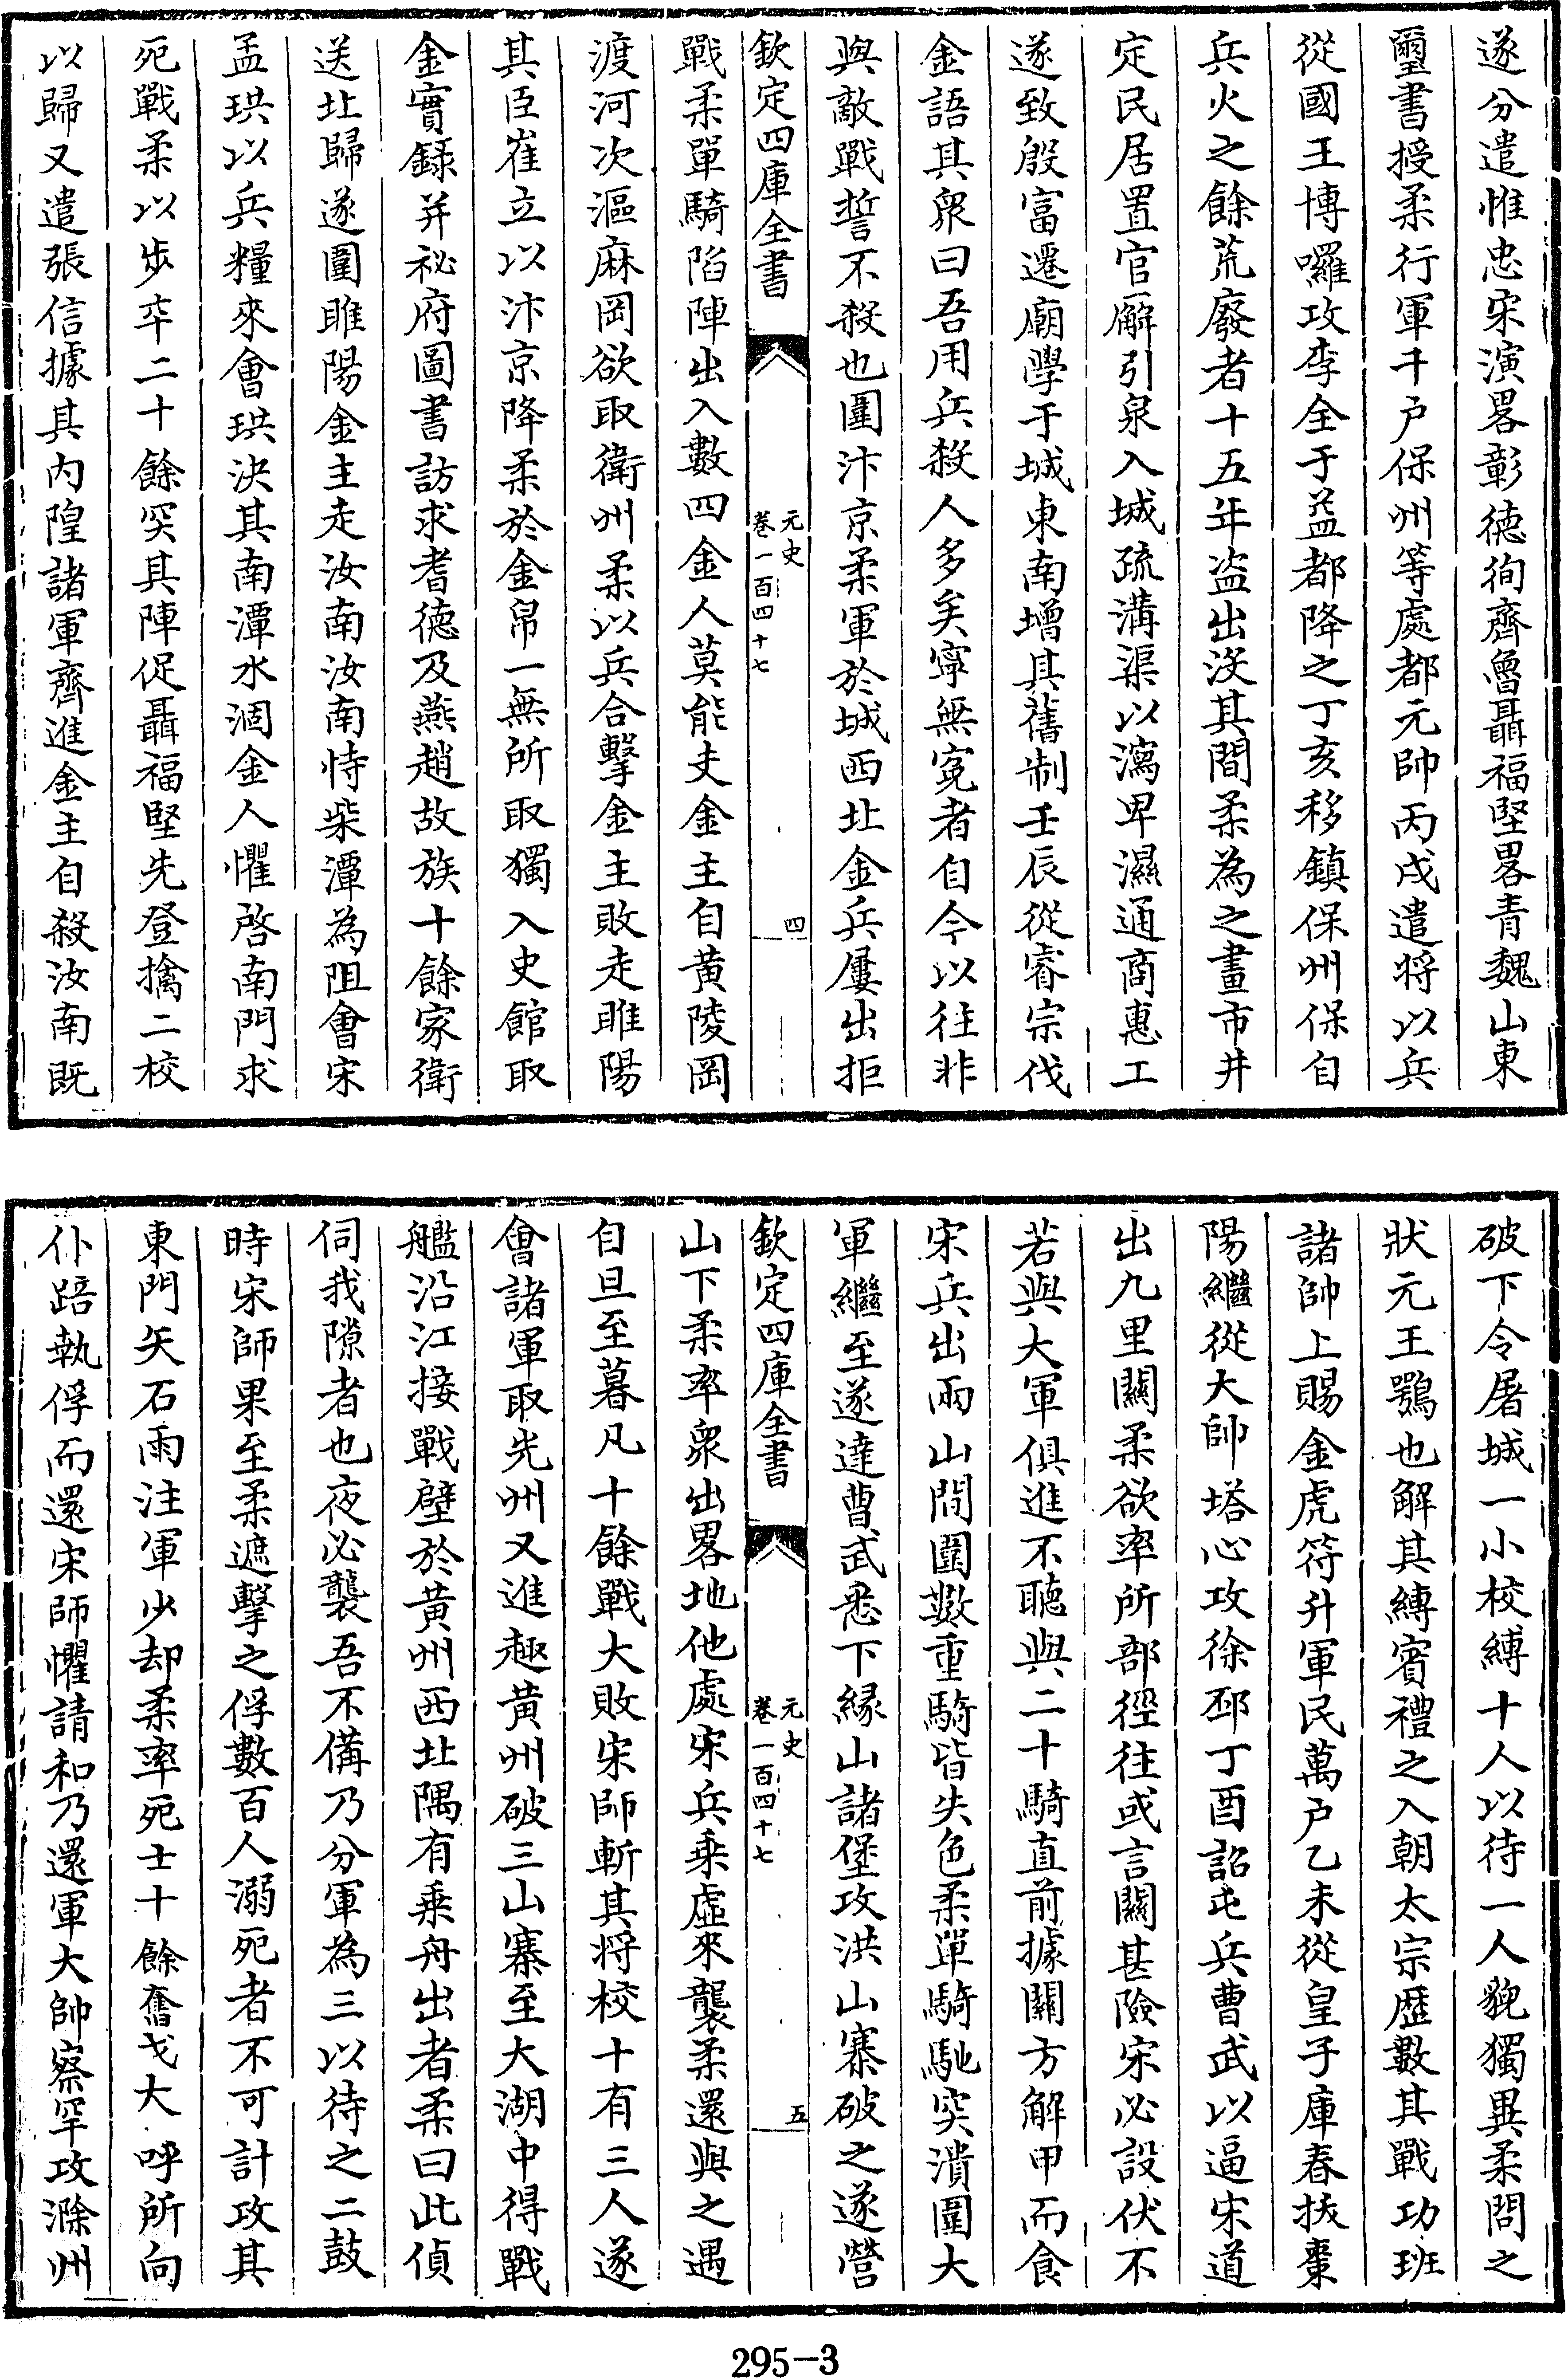 遂分遣惟忠宋演畧彰徳徇齊魯聶福堅畧青魏山東
璽書授柔行軍千户保州等處都元帥丙戌遣将以兵
從國王博囉攻李全于益都降之丁亥移鎮保州保自
兵火之餘荒廢者十五年盗出沒其間柔為之畫市井
定民居置官廨引泉入城疏溝渠以瀉卑濕通商惠工
遂致殷富遷廟學于城東南增其舊制壬辰從睿宗伐
金語其衆曰吾用兵殺人多矣寜無寃者自今以往非
與敵戰誓不殺也圍汴京柔軍於城西北金兵屢出拒
欽定四庫全書
元史
卷一百四十七
四
戰柔單騎陷陣出入數四金人莫能支金主自黄陵岡
渡河次漚麻岡欲取衛州柔以兵合擊金主敗走睢陽
其臣崔立以汴京降柔於金帛一無所取獨入史館取
金實録并祕府圖書訪求耆徳及燕趙故族十餘家衛
送北歸遂圍睢陽金主走汝南汝南恃柴潭為阻會宋
孟珙以兵糧來會珙決其南潭水涸金人懼啓南門求
死戰柔以步卒二十餘突其陣促聶福堅先登擒二校
以歸又遣張信據其内隍諸軍齊進金主自殺汝南既
破下令屠城一小校縛十人以待一人貌獨異柔問之
狀元王鶚也解其縛賓禮之入朝太宗歴數其戰功班
諸帥上賜金虎符升軍民萬户乙未從皇子庫春拔棗
陽繼從大帥塔心攻徐邳丁酉詔屯兵曹武以逼宋道
出九里關柔欲率所部徑往或言關甚險宋必設伏不
若與大軍俱進不聽與二十騎直前據關方解甲而食
宋兵出兩山間圍數重騎皆失色柔單騎馳突潰圍大
軍繼至遂達曹武悉下縁山諸堡攻洪山寨破之遂營
欽定四庫全書
元史
卷一百四十七
五
山下柔率衆出畧地他處宋兵乘虛來襲柔還與之遇
自旦至暮凡十餘戰大敗宋師斬其将校十有三人遂
會諸軍取光州又進趣黄州破三山寨至大湖中得戰
艦沿江接戰壁於黄州西北隅有乘舟出者柔曰此偵
伺我隙者也夜必襲吾不備乃分軍為三以待之二鼓
時宋師果至柔遮擊之俘數百人溺死者不可計攻其
東門矢石雨注軍少却柔率死士十餘奮戈大呼所向
仆踣執俘而還宋師懼請和乃還軍大帥察罕攻滁州
295-3